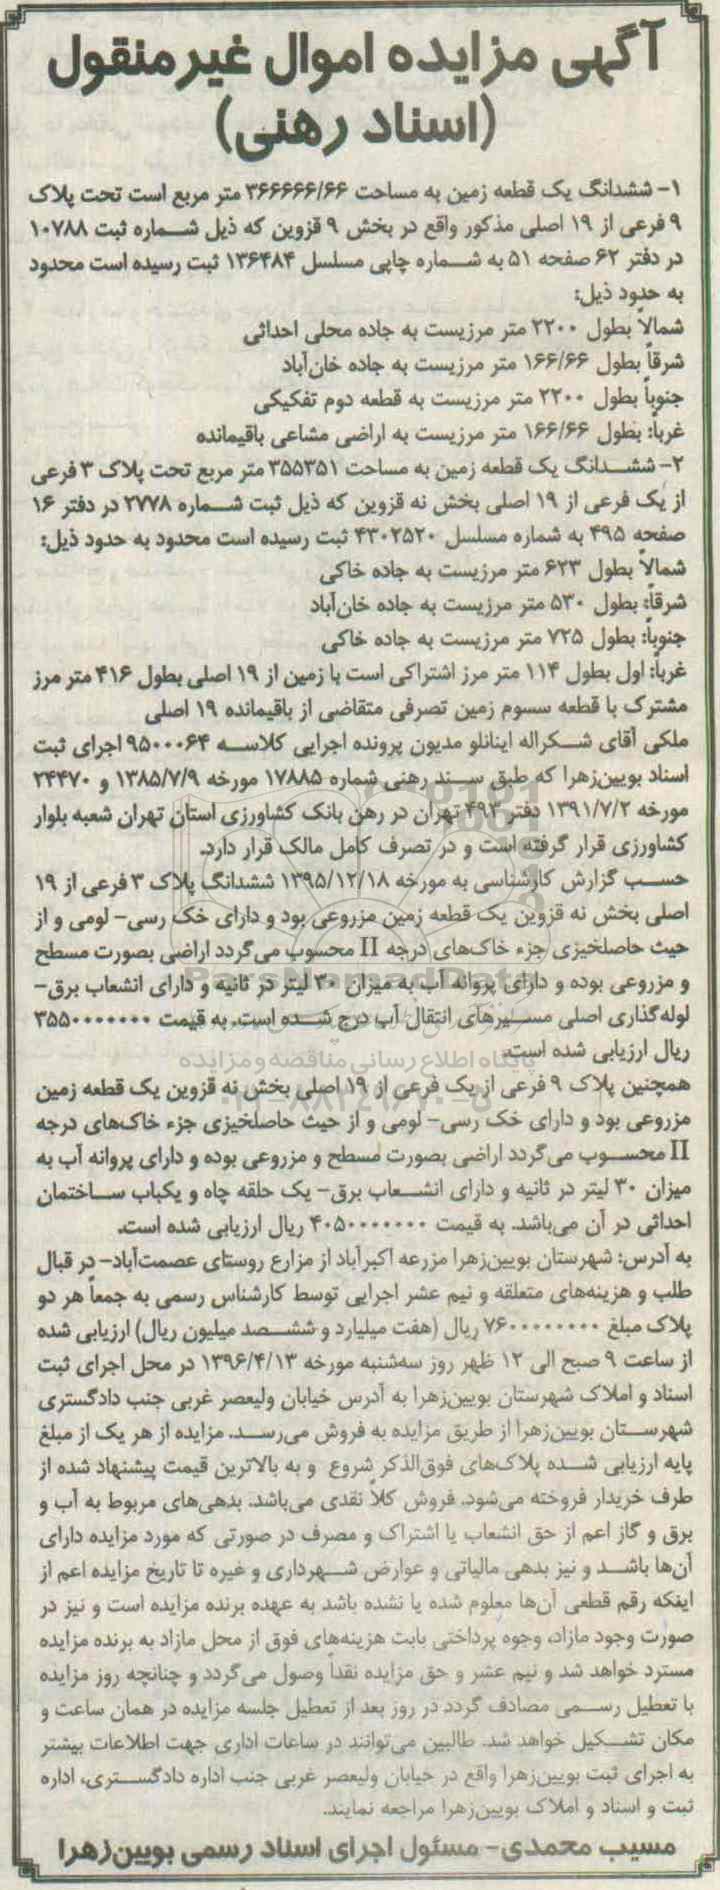 آگهی مزایده اموال غیرمنقول
(اسناد رهنی)
۱- ششدانگ یک قطعه زمین به مساحت ۳۶۶۶۶۶/۶۶ متر مربع است تحت پلاک
۹ فرعی از ۱۹ اصلی مذکور واقع در بخش ۹ قزوین که ذیل شماره ثبت ۱۰۷۸۸
در دفتر ۶۲ صفحه ۵۱ به شماره چاپی مسلسل ۱۳۶۴۸۴ ثبت رسیده است محدود
به حدود ذیل:
شمالاً بطول ۲۲۰۰ متر مرزیست به جاده محلی احداثی
شرقاً بطول ۱۶۶/۶۶ متر مرزیست به جاده خان‌آباد
جنوباً بطول ۲۲۰۰ متر مرزیست به قطعه دوم تفکیکی
غرباً: بطول ۱۶۶/۶۶ متر مرزیست به اراضی مشاعی باقیمانده
۲- ششدانگ یک قطعه زمین به مساحت ۳۵۵۳۵۱ متر مربع تحت پلاک ۳ فرعی
از یک فرعی از ۱۹ اصلی بخش نه قزوین که ذیل ثبت شماره ۲۷۷۸ در دفتر ۱۶
صفحه ۴۹۵ به شماره مسلسل ۴۳۰۲۵۲۰ ثبت رسیده است محدود به حدود ذیل:
شمالاً بطول ۶۲۳ متر مرزیست به جاده خاکی
شرقاً: بطول ۵۳۰ متر مرزیست به جاده خان‌آباد
جنوباً: بطول ۷۲۵ متر مرزیست به جاده خاکی
غرباً: اول بطول ۱۱۴ متر مرز اشتراکی است با زمین از ۱۹ اصلی بطول ۴۱۶ متر مرز
مشترک با قطعه سوم زمین تصرفی متقاضی از باقیمانده ۱۹ اصلی
ملکی آقای شکراله اینانلو مدیون پرونده اجرایی کلاسه ۹۵۰۰۰۶۴ اجرای ثبت
اسناد بویین‌زهرا که طبق سند رهنی شماره ۱۷۸۸۵ مورخه ۱۳۸۵/۷/۹ و ۲۴۴۷۰
مورخه ۱۳۹۱/۷/۲ دفتر ۴۹۳ تهران در رهن بانک کشاورزی استان تهران شعبه بلوار
کشاورزی قرار گرفته است و در تصرف کامل مالک قرار دارد.
حسب گزارش کارشناسی به مورخه ۱۳۹۵/۱۲/۱۸ ششدانگ پلاک ۳ فرعی از ۱۹
اصلی بخش نه قزوین یک قطعه زمین مزروعی بود و دارای خک رسی- لومی و از
حیث حاصلخیزی جزء خاک‌های درجه II محسوب می‌گردد اراضی بصورت مسطح
و مزروعی بوده و دارای پروانه آب به میزان ۳۰ لیتر در ثانیه و دارای انشعاب برق-
لوله‌گذاری اصلی مسیرهای انتقال آب درج شده است. به قیمت ۳۵۵۰۰۰۰۰۰۰
ریال ارزیابی شده است.
همچنین پلاک ۹ فرعی از یک فرعی از ۱۹ اصلی بخش نه قزوین یک قطعه زمین
مزروعی بود و دارای خک رسی- لومی و از حیث حاصلخیزی جزء خاک‌های درجه
II محسوب می‌گردد اراضی بصورت مسطح و مزروعی بوده و دارای پروانه آب به
میزان ۳۰ لیتر در ثانیه و دارای انشعاب برق- یک حلقه چاه و یکباب ساختمان
احداثی در آن می‌باشد. به قیمت ۴۰۵۰۰۰۰۰۰۰ ریال ارزیابی شده است.
به آدرس: شهرستان بویین‌زهرا مزرعه اکبرآباد از مزارع روستای عصمت‌آباد- در قبال
طلب و هزینه‌های متعلقه و نیم عشر اجرایی توسط کارشناس رسمی به جمعاً هر دو
پلاک مبلغ ۷۶۰۰۰۰۰۰۰۰ ریال (هفت میلیارد و ششصد میلیون ریال) ارزیابی شده
از ساعت ۹ صبح الی ۱۲ ظهر روز سه‌شنبه مورخه ۱۳۹۶/۴/۱۳ در محل اجرای ثبت
اسناد و املاک شهرستان بویین‌زهرا به آدرس خیابان ولیعصر غربی جنب دادگستری
شهرستان بویین‌زهرا از طریق مزایده به فروش می‌رسد. مزایده از هر یک از مبلغ
پایه ارزیابی شده پلاک‌های فوق‌الذکر شروع و به بالاترین قیمت پیشنهاد شده از
طرف خریدار فروخته می‌شود. فروش کلاً نقدی می‌باشد. بدهی‌های مربوط به آب و
برق و گاز اعم از حق انشعاب یا اشتراک و مصرف در صورتی که مورد مزایده دارای
آن‌ها باشد و نیز بدهی مالیاتی و عوارض شهرداری و غیره تا تاریخ مزایده اعم از
اینکه رقم قطعی آن‌ها معلوم شده یا نشده باشد به عهده برنده مزایده است و نیز در
صورت وجود مازاد، وجوه پرداختی بابت هزینه‌های فوق از محل مازاد به برنده مزایده
مسترد خواهد شد و نیم عشر و حق مزایده نقداً وصول می‌گردد و چنانچه روز مزایده
با تعطیل رسمی مصادف گردد در روز بعد از تعطیل جلسه مزایده در همان ساعت و
مکان تشکیل خواهد شد. طالبین می‌توانند در ساعات اداری جهت اطلاعات بیشتر
به اجرای ثبت بویین‌زهرا واقع در خیابان ولیعصر غربی جنب اداره دادگستری، اداره
ثبت و اسناد و املاک بویین‌زهرا مراجعه نمایند.
مسیب محمدی- مسئول اجرای اسناد رسمی بویین‌زهرا
ParsNamadData
پایگاه اطلاع رسانی مناقصه و مزایده